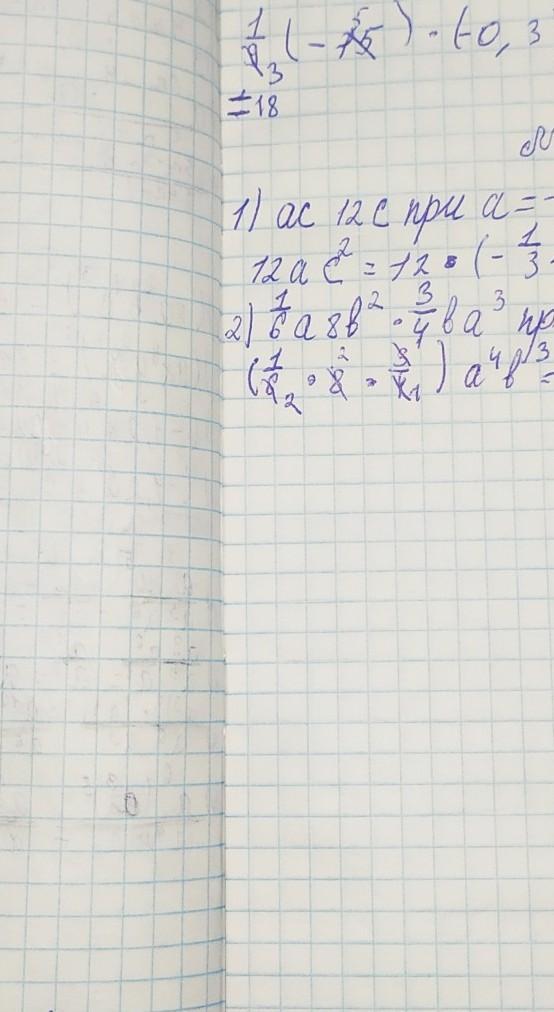 1/9 3 (- 15 5) · (-0,3
= 18
№
1) ac 12c при a = -
12ac² = 12 · (- 1/3 ·
2) 1/6 a 8b² · 3/4 ba³ пр
(1/6 2 · 8 2 · 3/4 1 1) a⁴b³ =